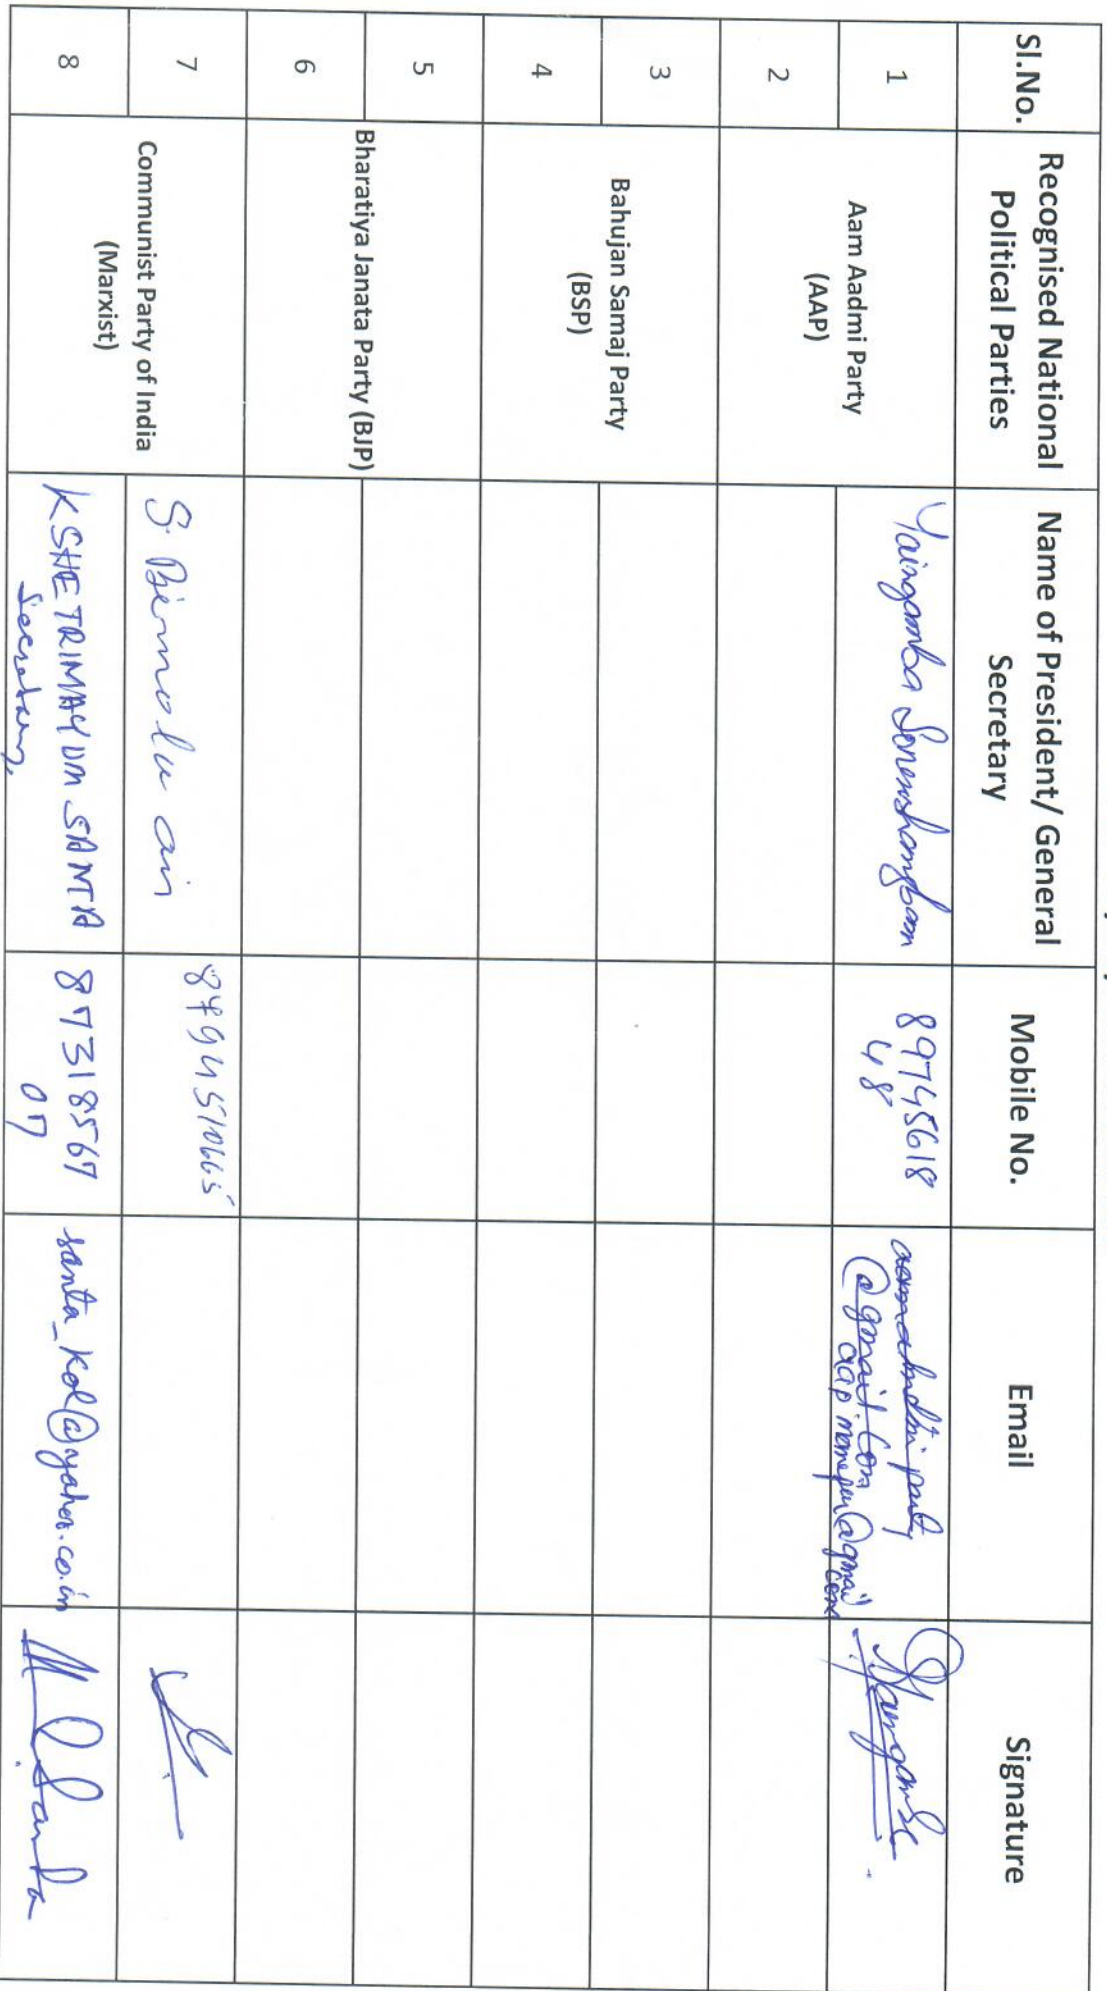 Sl.No.
Recognised National
Political Parties
Name of President/ General
Secretary
Mobile No.
Email
Signature
1
Aam Aadmi Party
(AAP)
Yaingamba Sorensangbam
89745618
48
@gmail.com
2
3
Bahujan Samaj Party
(BSP)
4
5
Bharatiya Janata Party (BJP)
6
7
Communist Party of India
(Marxist)
S.
8
KSHETRIMAYUM SANTA
Secretary
87318567
07
santa_kol@yahoo.co.in
Santa